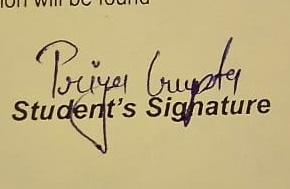 ion will be found
Priya Gupta
Student's Signature